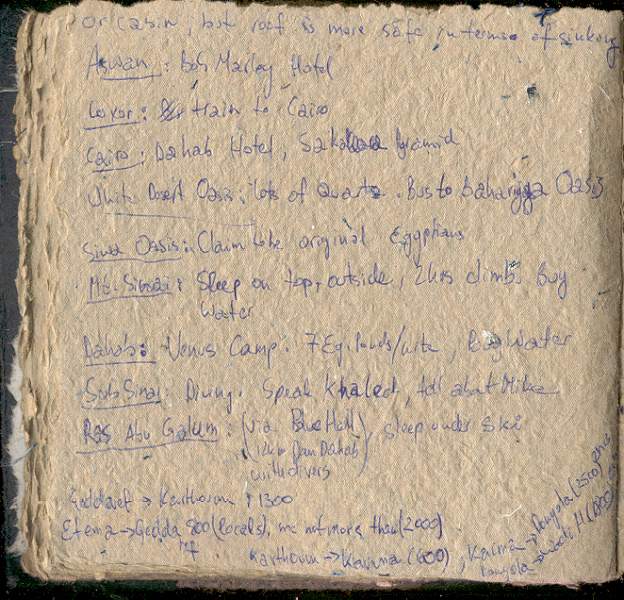 or cabin, but roof is more safe in terms of sinking
Aswan: Bob Marley Hotel
Luxor: train to Cairo
Cairo: Dahab Hotel, Pyramid
White Desert Oasis: lots of Quartz. Bus to bahariyya Oasis
Siwa Oasis: Claim to be original Egyptians
Mt. Sinai: Sleep on top, outside, 2hrs climb. Buy
Water
Dahab: Venus Camp: 7 Eg. Pounds/nite, Buy Water
Sub Sinai Diving. Speak Khaled, tell about Mike
Ras Abu Galum: (via Blue Hole, sleep under Ski
12km Dahab
with divers)
→ Karthoum 1300
→ Gedda 800 (locals), me not more than (2000)
Karthoum → Karima (600), Karima → Dongola (2500)
Dongola → Wadi H